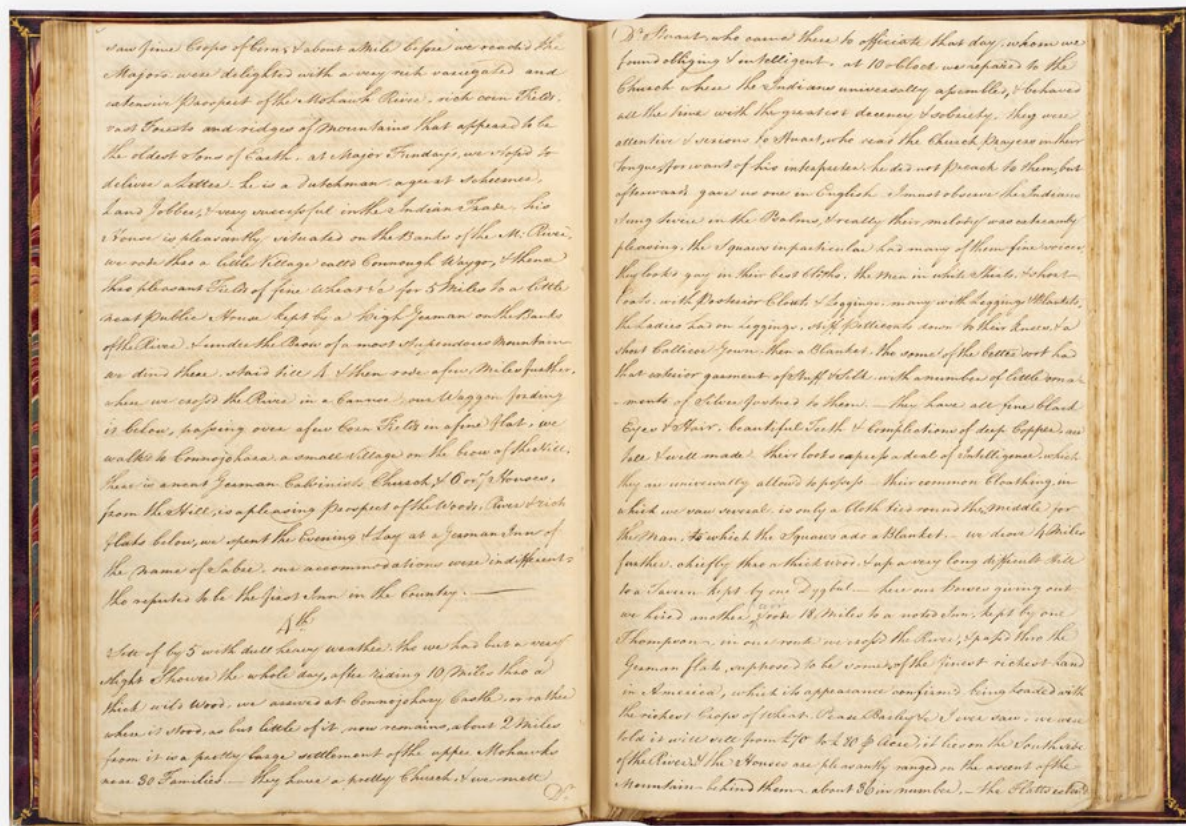 saw fine Crops of Corn, & about a Mile before we reached the
Majors were delighted with a very rich variegated and
extensive Prospect of the Mohawk River. rich corn Fields.
vast Forests and ridges of Mountains that appeared to be
the oldest Sons of Earth. at Major Fundays, we stopd to
deliver a Letter. he is a Dutchman. a great schemer,
Land Jobber, & very successful in the Indian Trade. his
House is pleasantly situated on the Banks of the M: River,
we rode thro a little Village calld Connough Waygo, & thence
thro pleasant Fields of fine Wheat &c for 5 Miles to a little
neat Public House kept by a High German on the Banks
of the River. & under the Brow of a most stupendous Mountain
we dind there. staid till 4 & then rode a few Miles further,
when we cross'd the River in a Cannoe, our Waggon fording
it below, passing over a few Corn Fields in a fine flat, we
walk'd to Connojohara a small Village on the brow of the Hill,
there is a neat German Calvinists Church, & 6 or 7 Houses.
from the Hill, is a pleasing Prospect of the Woods, River & rich
flats below, we spent the Evening & Lay at a German Inn of
the name of Sabre. our accommodations were indifferent-
tho reputed to be the first Inn in the Country. —
4th
Sett of by 5 with dull heavy weather. tho we had but a very
slight Shower the whole day, after riding 10 Miles thro a
thick wild Wood. we arrived at Connojohary Castle. or rather
where it stood, as but little of it now remains, about 2 Miles
from it is a pretty large settlement of the upper Mohawks
near 30 Families — they have a pretty Church, & we mett
Dr
Dr Stuart, who came there to officiate that day. whom we
found obliging & intelligent. at 10 oClock we repaired to the
Church where the Indians universally assembled, & behaved
all the time with the greatest decency & sobriety. they were
attentive & serious to Stuart, who read the Church Prayers in their
Tongue, for want of his interpreter he did not Preach to them, but
afterwards gave us one in English. I must observe the Indians
Sung twice in the Psalms, & really their melody was extreamly
pleasing. the Squaws in particular had many of them fine voices
they look'd gay in their best Cloths. the Men in white Shirts, & short
Coats. with Posterior Clouts & Leggings. many with Leggings & Blankets,
the Ladies had on Leggings. Stuff Petticoats down to their knees & a
short Callicoe Gown. then a Blanket. tho some of the better sort had
that exterior garment of Stuff & Silk. with a number of little orna
-ments of Silver fastned to them. — they have all fine black
Eyes & Hair. beautiful Teeth & Complections of deep Copper. are
tall & well made their looks express a deal of Intelligence which
they are universally allowed to possess — their common Cloathing, in
which we saw several. is only a Cloth tied round the Middle for
the Man, to which the Squaws add a Blanket. — we drove 4 Miles
further. chiefly thro a thick wood. & up a very long difficult Hill
to a Tavern kept by one Dygbat — here our Horses giving out
we hired another & rode 18 Miles to a noted Inn, kept by one
Thompson, in our route we cross'd the River, & pass'd thro the
German flats, supposed to be some of the finest richest Land
in America, which its appearance confirmd being loaded with
the richest Crops of Wheat. Pease Barley &c I ever saw. we were
told it will sell from £70 to £80 ⅌ Acre, it lies on the South side
of the River, & the Houses are pleasantly ranged on the ascent of the
Mountain behind them about 36 in number. — the Flatts extend